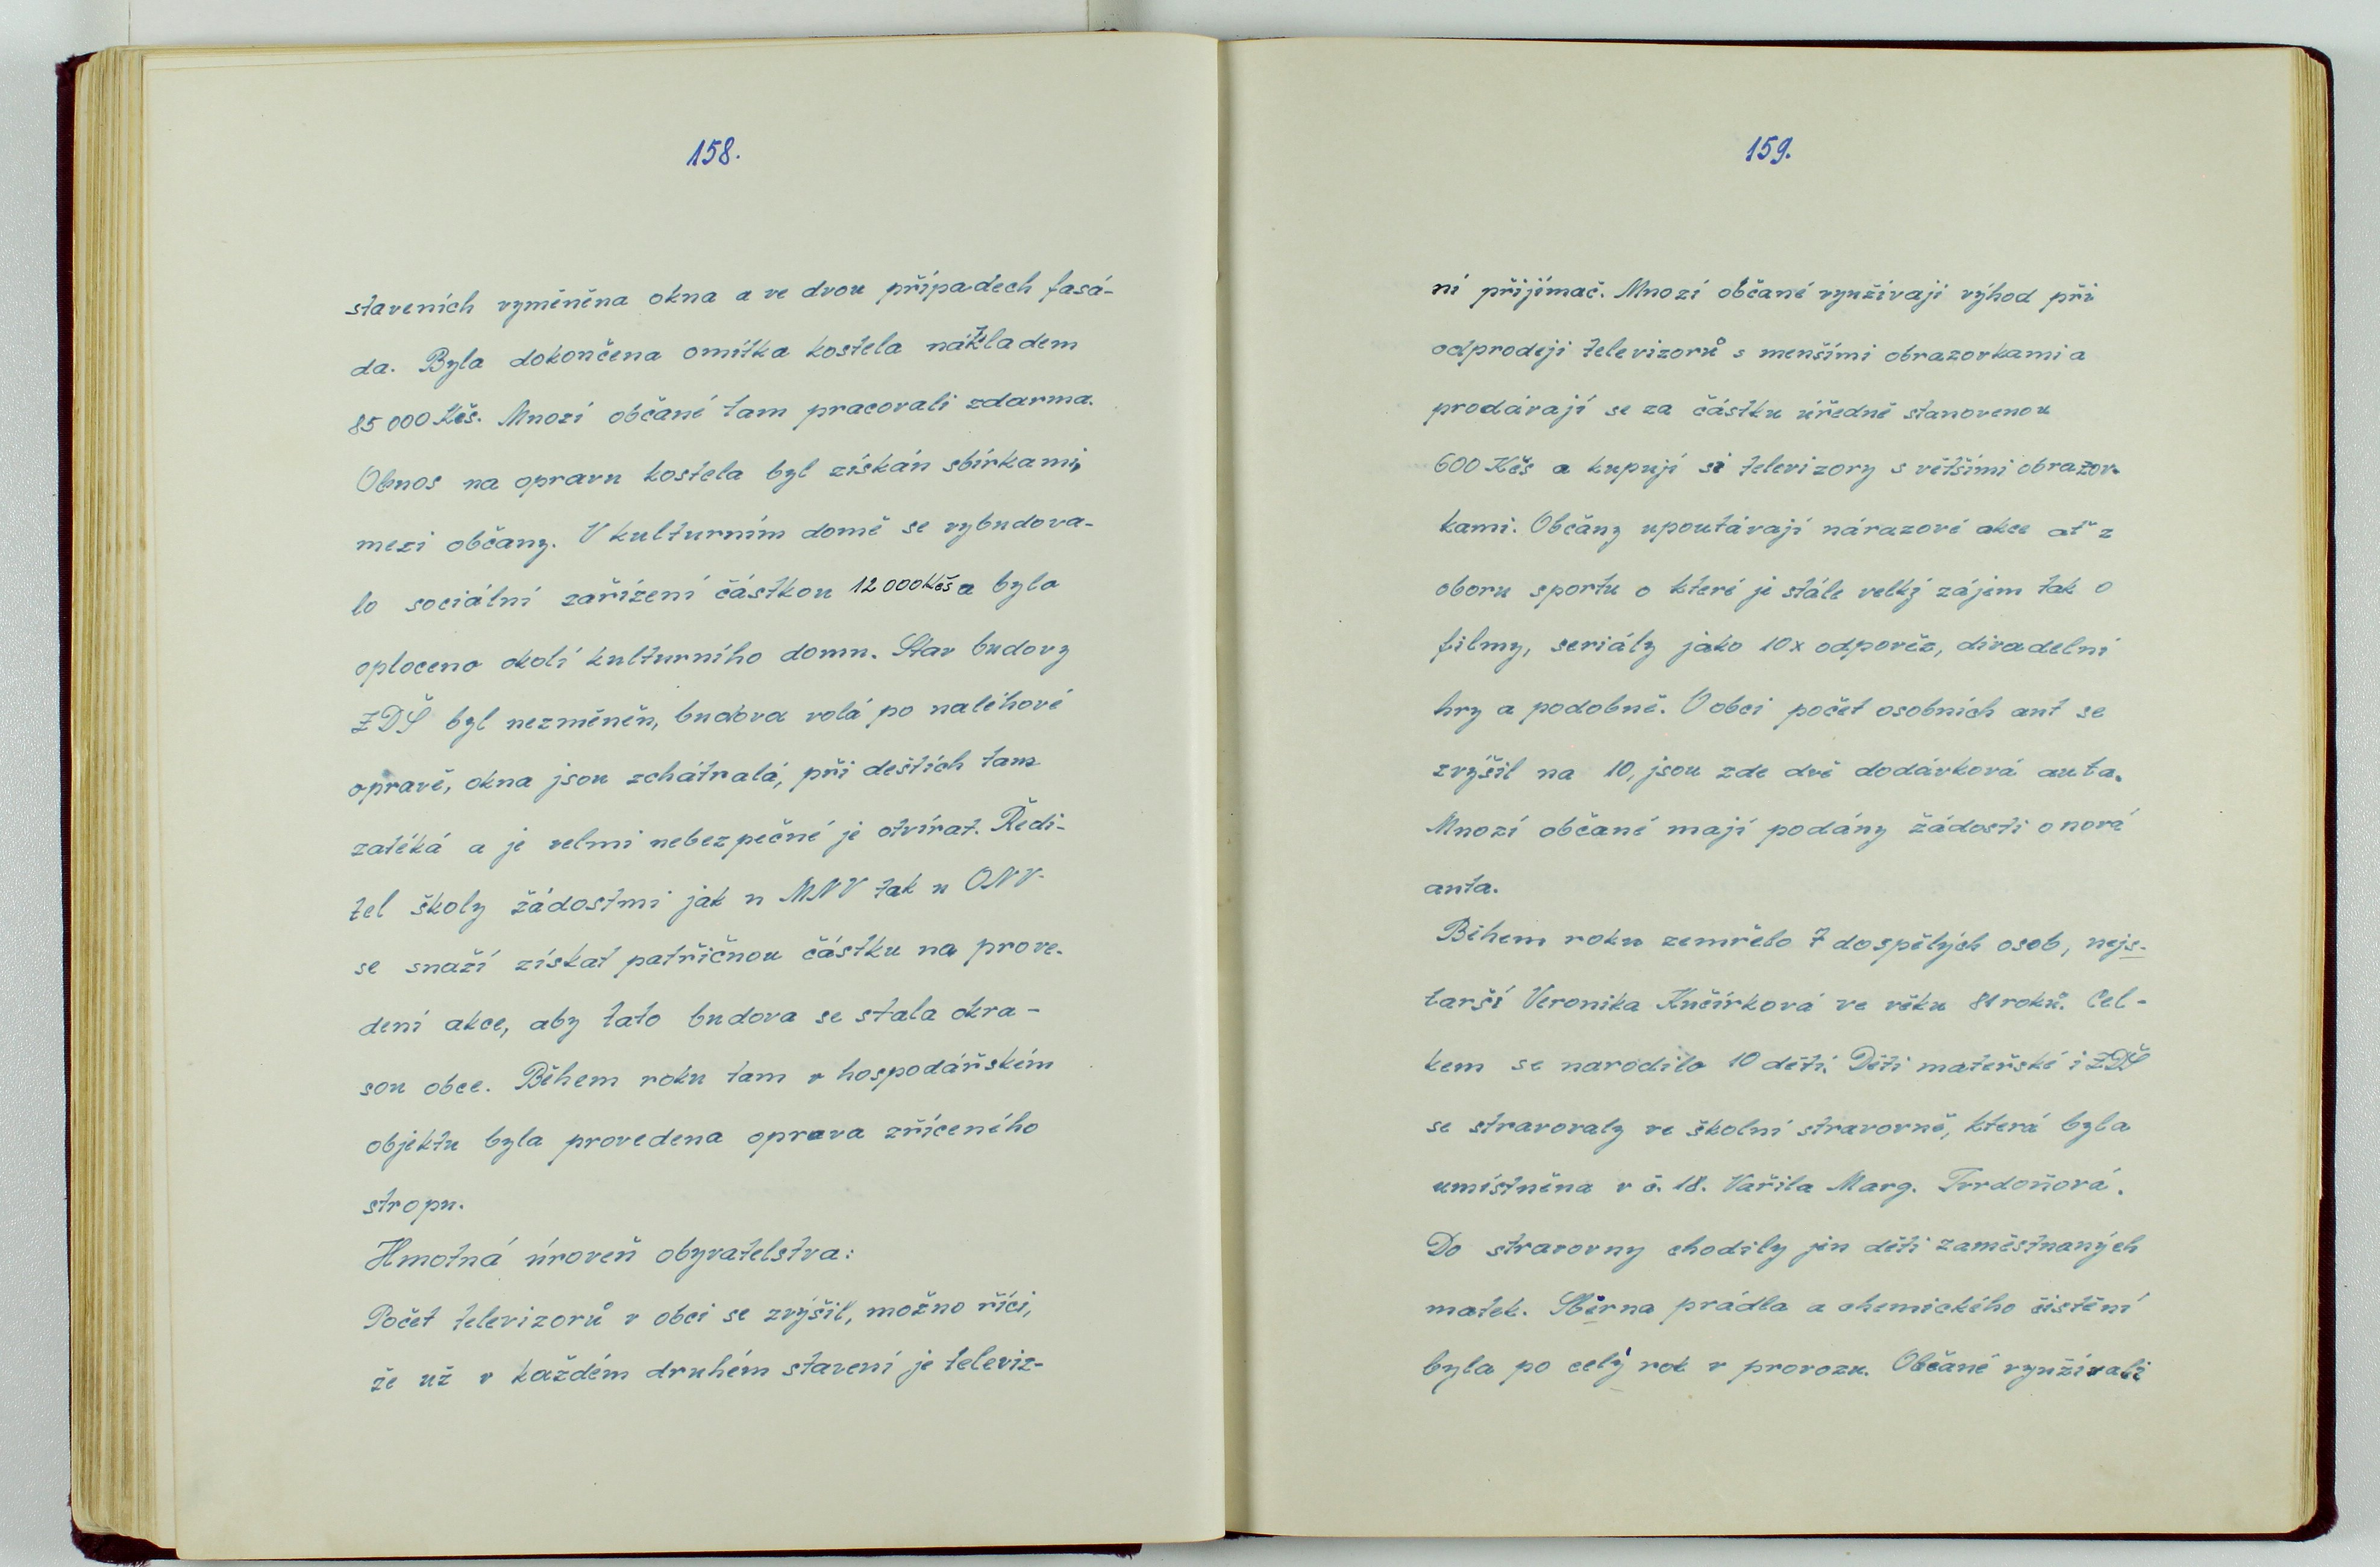 158.
staveních vyměněna okna a ve dvou případech fasá-
da. Byla dokončena omítka kostela nákladem
85 000 Kčs. Mnozí občané tam pracovali zdarma.
Obnos na opravu kostela byl získán sbírkami,
mezi občany. V kulturním domě se vybudova-
lo sociální zařízení částkou 12 000 Kčs a byla
oploceno okolí kulturního domu. Stav budovy
ZDŠ byl nezměněn, budova volá po naléhové
opravě, okna jsou zchátralá, při deštích tam
zatéká a je velmi nebezpečné je otvírat. Ředi-
tel školy žádostmi jak u MNV tak u ONV
se snaží získat patřičnou částku na prove-
dení akce, aby tato budova se stala okra-
sou obce. Během roku tam v hospodářském
objektu byla provedena oprava zříceného
stropu.
Hmotná úroveň obyvatelstva:
Počet televizorů v obci se zvýšil, možno říci,
že už v každém druhém stavení je televiz-
159.
ní přijímač. Mnozí občané využívají výhod při
odprodeji televizorů s menšími obrazovkami a
prodávají se za částku úředně stanovenou
600 Kčs a kupují si televizory s většími obrazov-
kami. Občany upoutávají nárazové akce ať z
oboru sportu o které je stále velký zájem tak o
filmy, seriály jako 10x odpověz, divadelní
hry a podobně. V obci počet osobních aut se
zvýšil na 10, jsou zde dvě dodávková auta.
Mnozí občané mají podány žádosti o nová
auta.
Během roku zemřelo 7 dospělých osob, nejs-
tarší Veronika Kučírková ve věku 81 roků. Cel-
kem se narodilo 10 dětí. Děti mateřské i ZDŠ
se stravovaly ve školní stravovně, která byla
umístněna v č. 18. Vařila Marg. Tvrdoňová.
Do stravovny chodily jen děti zaměstnaných
matek. Sběrna prádla a chemického čistění
byla po celý rok v provozu. Občané využívali